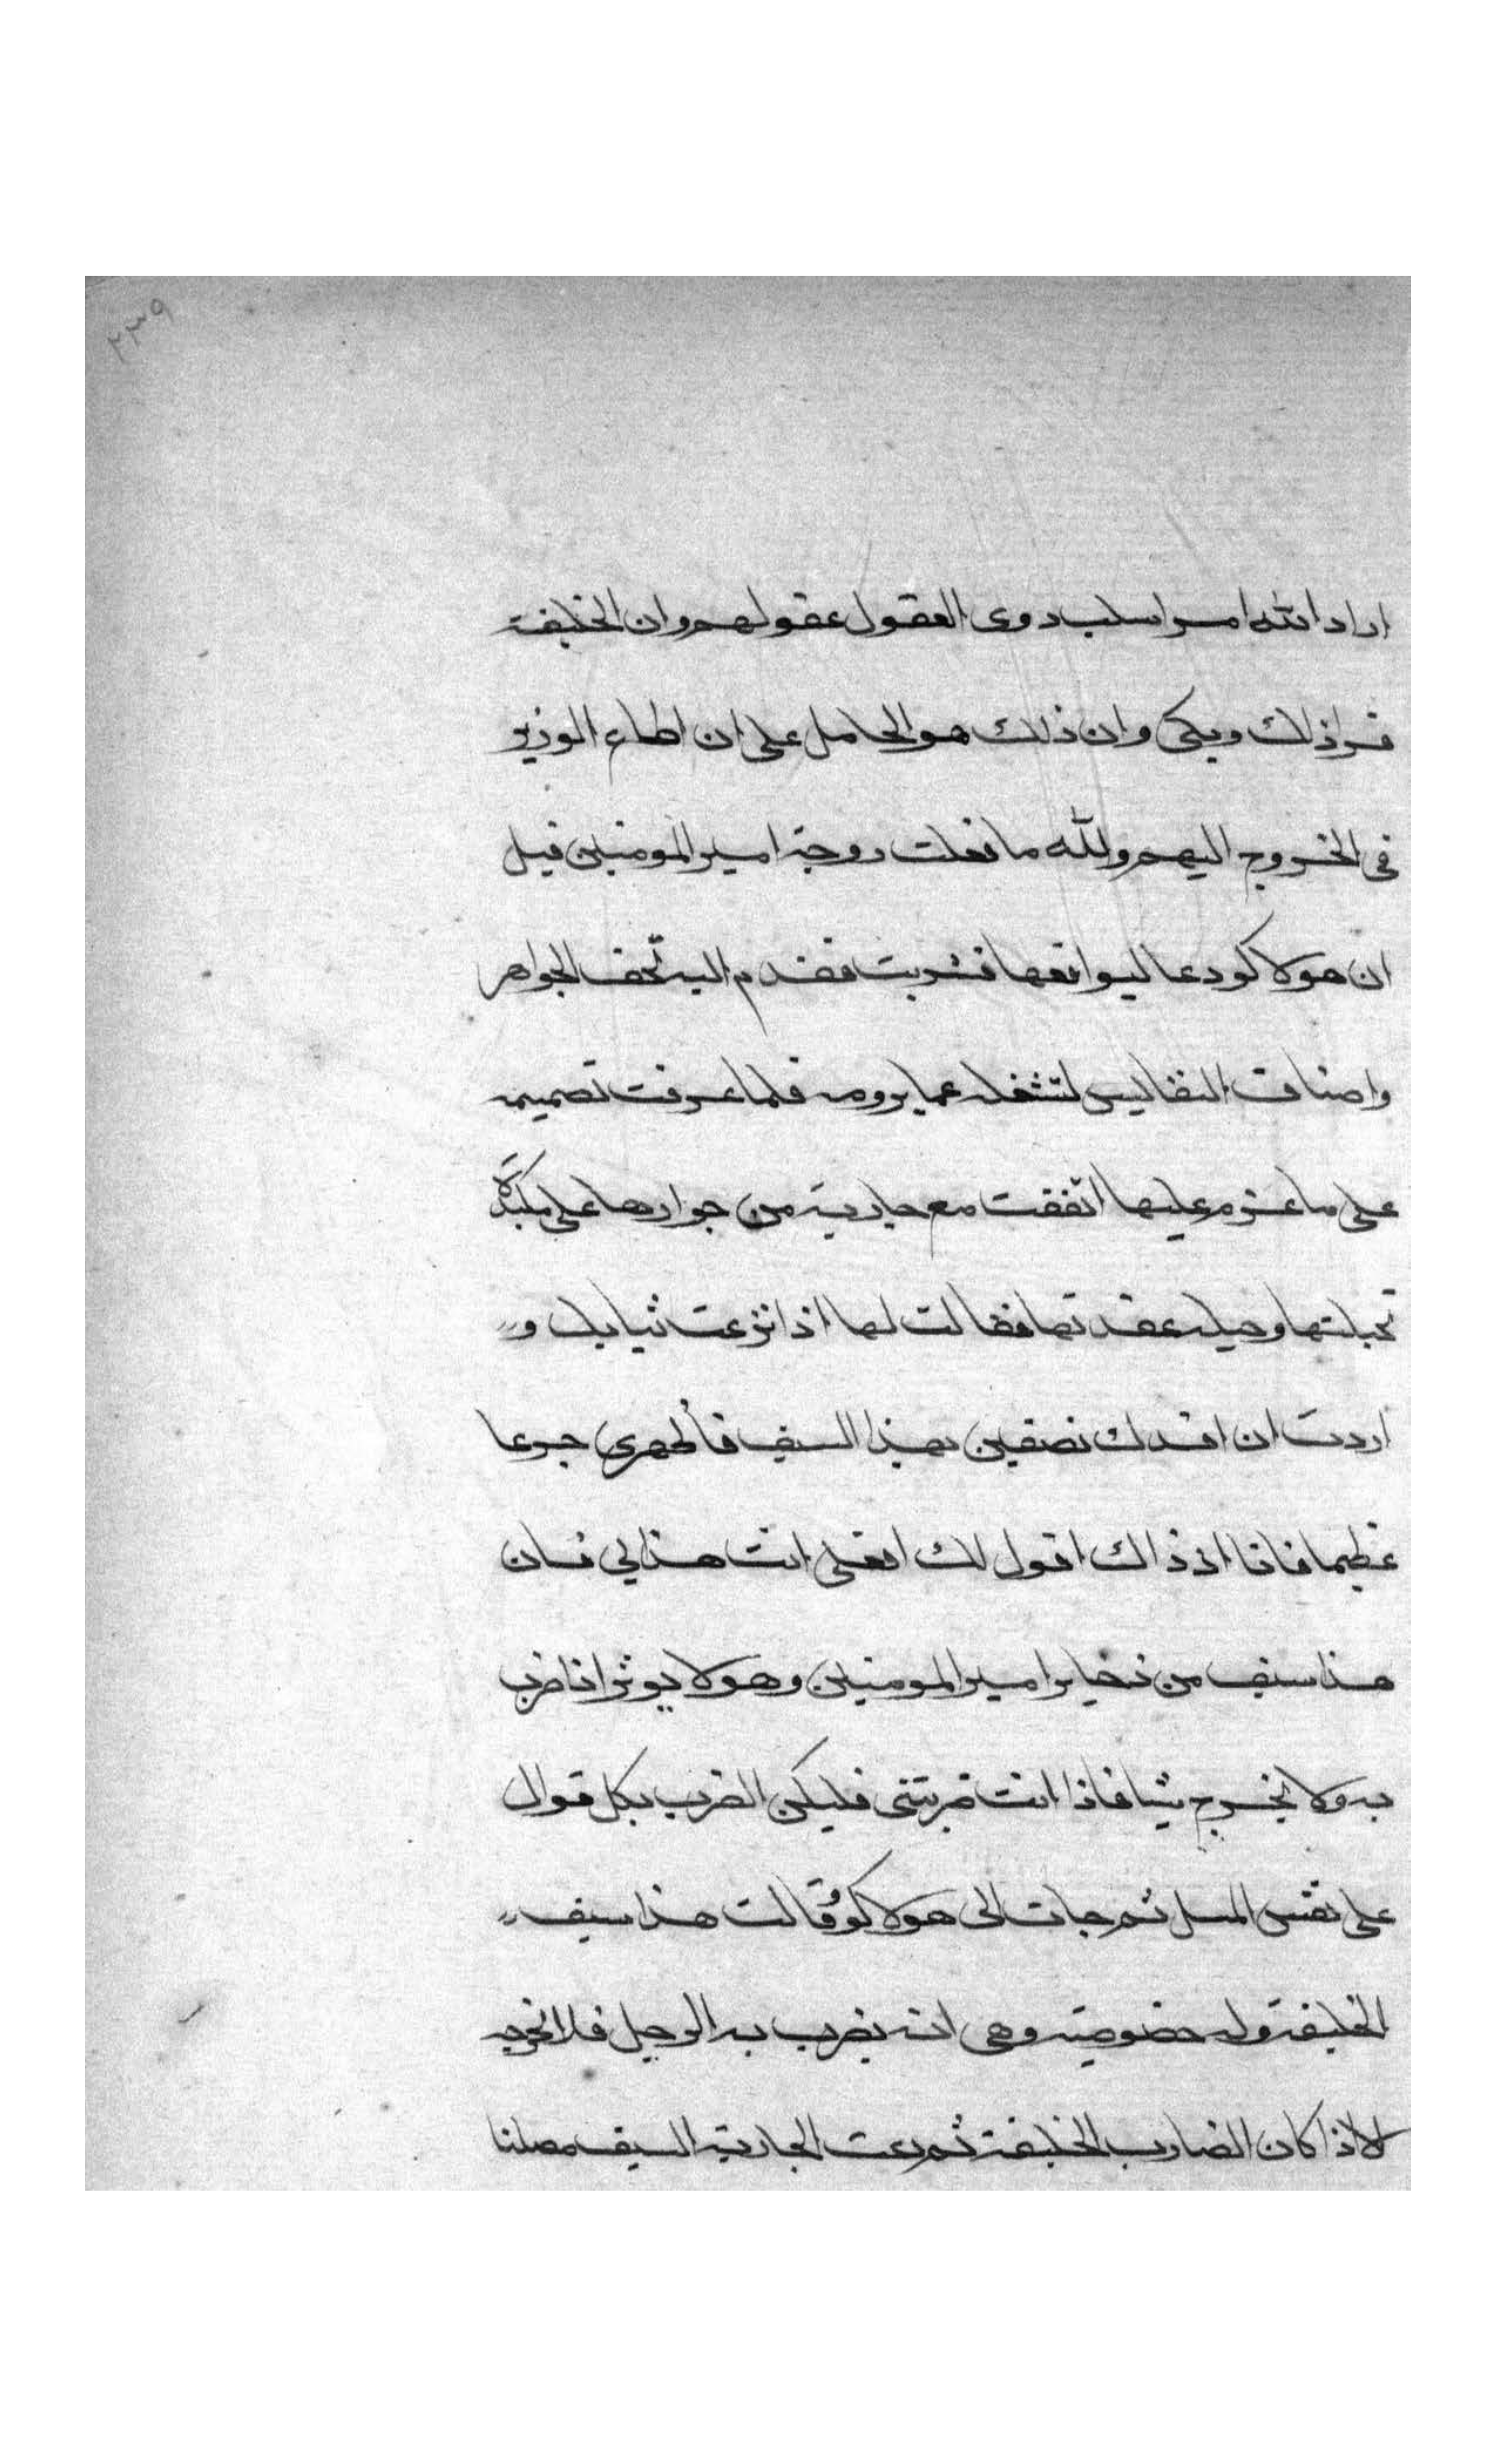 ٢٣٩
اراد الله امرا سلب دوى العقول عقولهم وان الخليفة
قرا ذلك وبكى وان ذلك هو الحامل على ان اطاع الوزير
فى الخروج اليهم ولله ما فعلت زوجة امير المومنين قيل
ان هولاكو دعا ليواقعها فشربت فقدم اليه تحف الجواهر
واصناف النفاليس لتشغله عما يرومه فلما عرفت تصميمه
على ما عزم عليها اتفقت مع جارية من جوارها على مكيدة
تحيلتها وحيله عقدتها فقالت لها اذا نزعت ثيابك و
اردت ان اقدك نصفين بهذا السيف فأظهرى جزعا
عظيما فانا اذ ذاك اقول لك افعلى انت هذا لي فان
هذا سيف من ذخاير امير المومنين وهو لا يوثر اذا ضرب
به ولا يخرج شيا فاذا انت ضربتنى فليكن الضرب بكل قوال
على نفس المسل ثم جات الى هولاكو وقالت هذا سيف
الخليفة وله خضوصيته وهى انه يضرب به الرجل فلا تخرجه
لا لاذا كان الضارب الخليفة ثم دعت الجارية السيف مصلتا